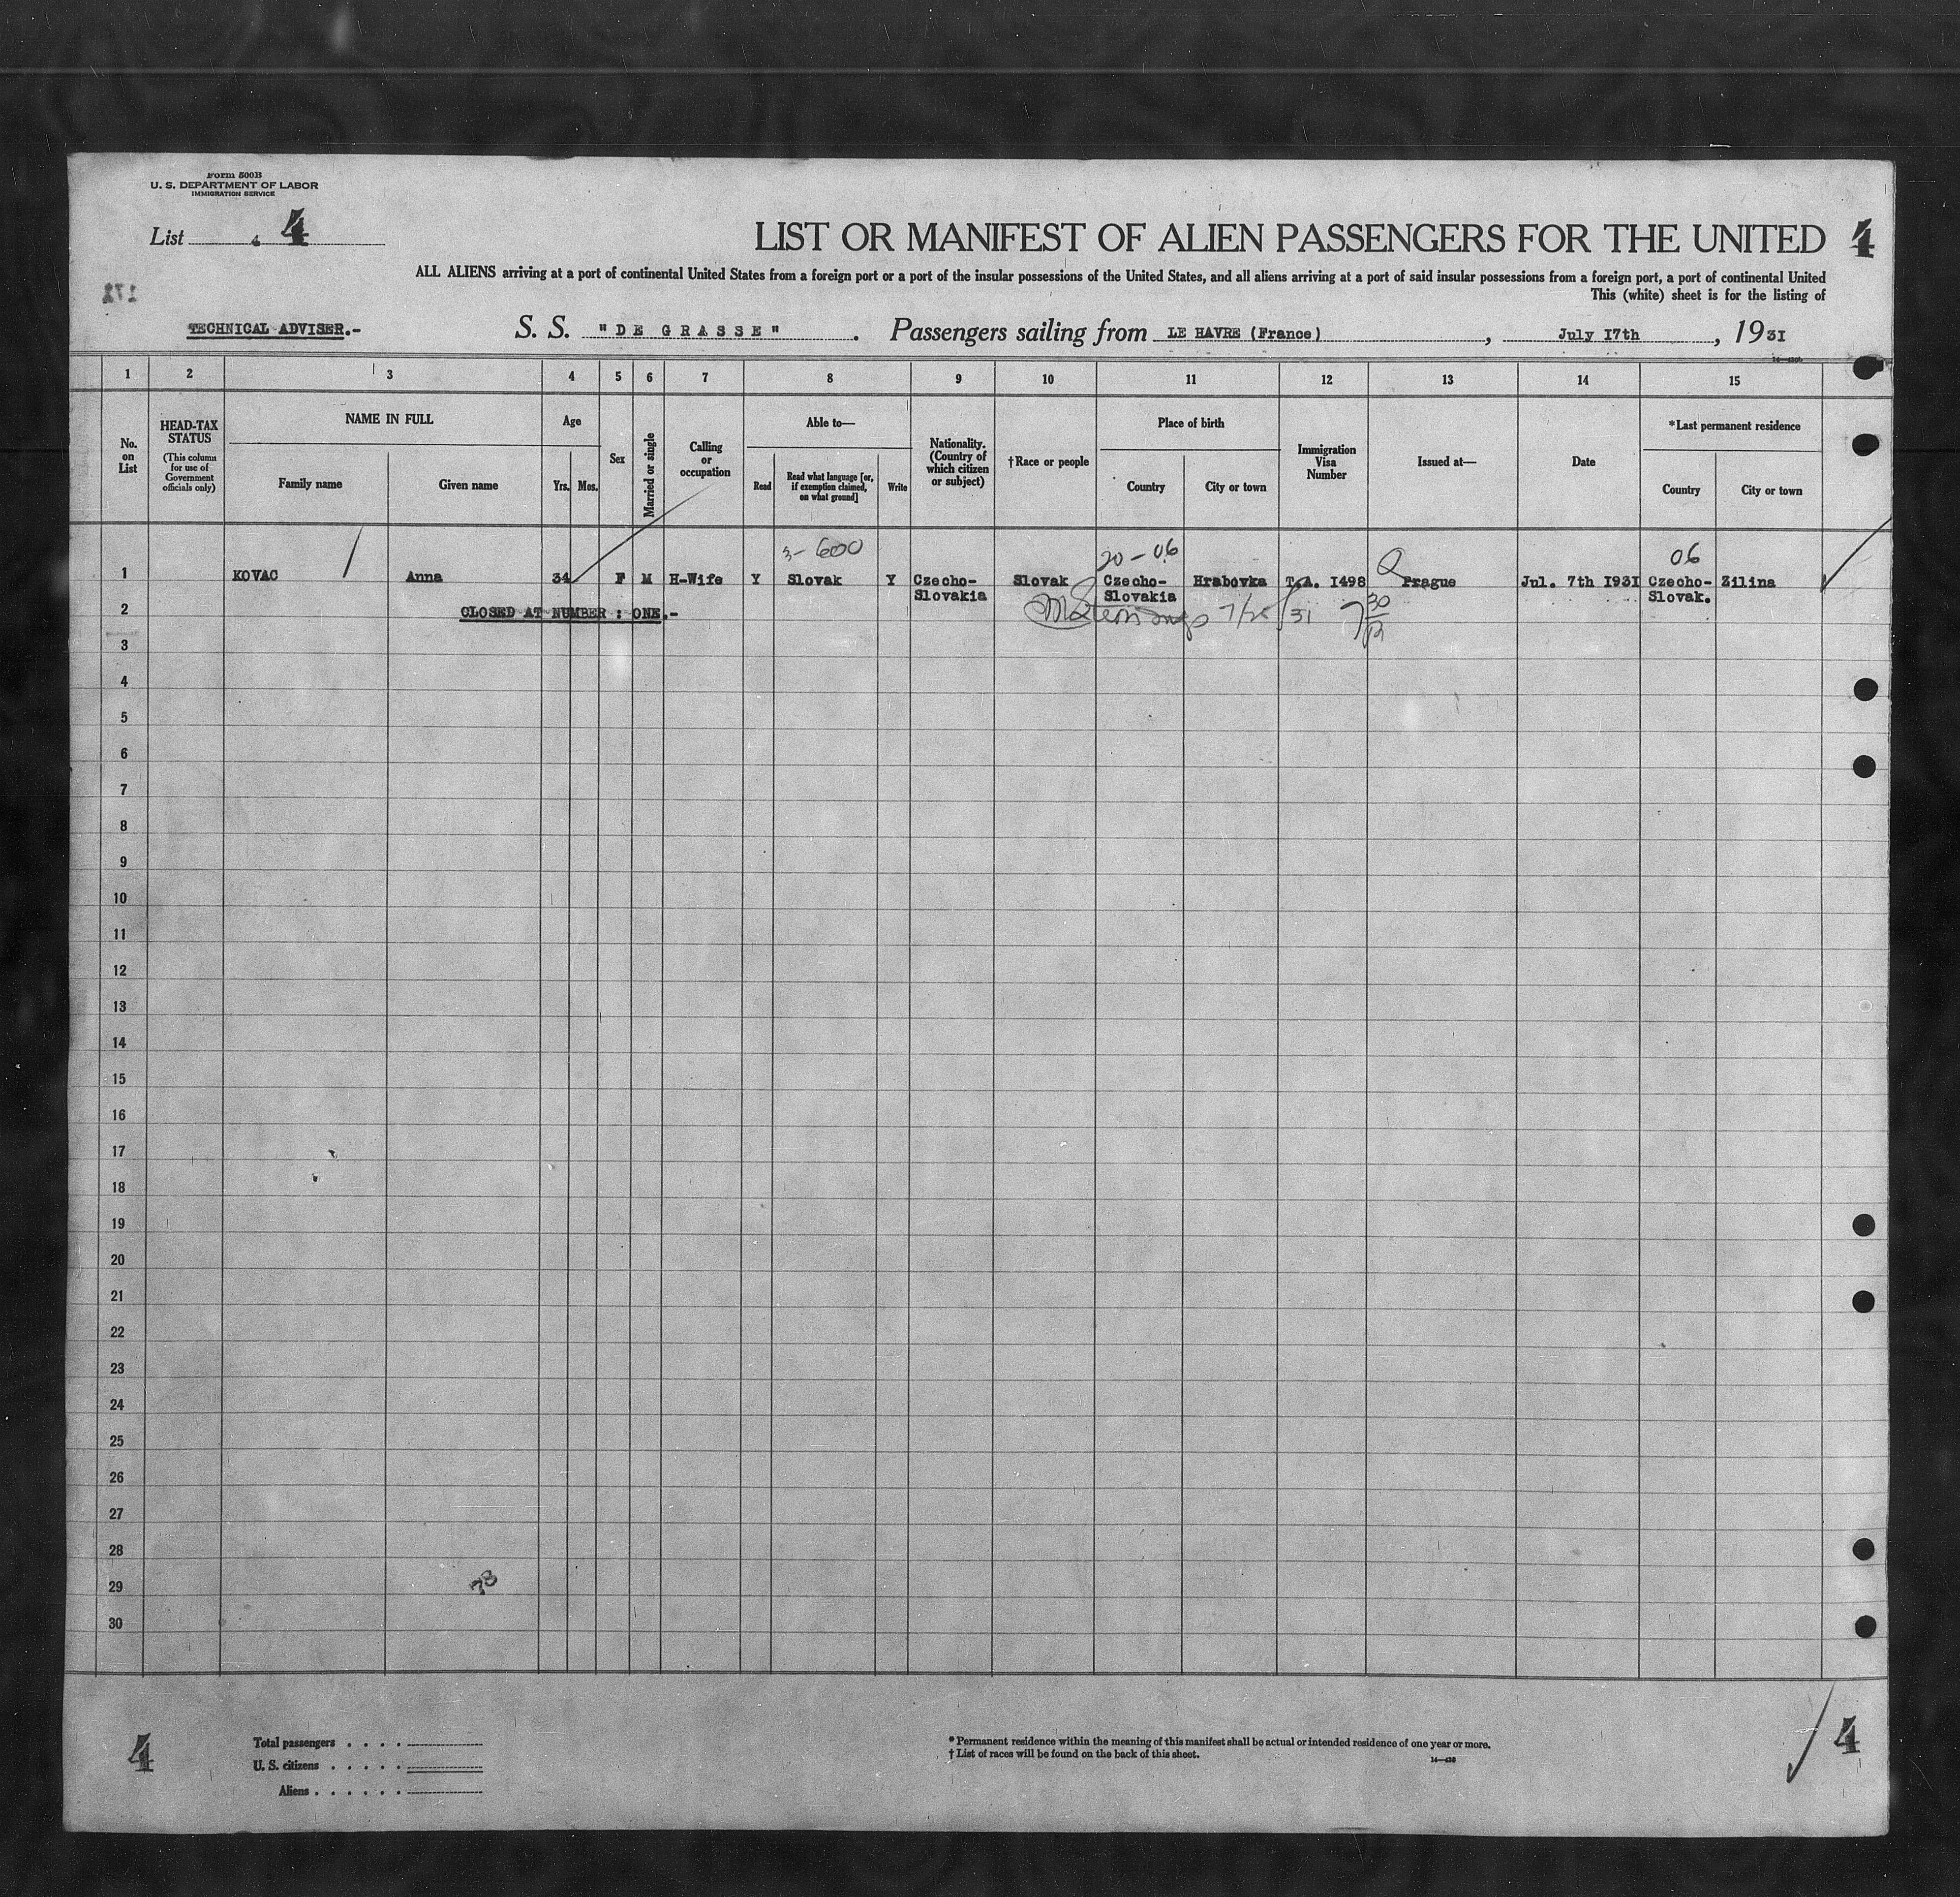 Form 500B
U. S. DEPARTMENT OF LABOR
IMMIGRATION SERVICE
List 4
LIST OR MANIFEST OF ALIEN PASSENGERS FOR THE UNITED 4
ALL ALIENS arriving at a port of continental United States from a foreign port or a port of the insular possessions of the United States, and all aliens arriving at a port of said insular possessions from a foreign port, a port of continental United
This (white) sheet is for the listing of
172
TECHNICAL ADVISER.- S. S. "DE GRASSE". Passengers sailing from LE HAVRE (France), July 17th, 1931
1 2 3 4 5 6 7 8 9 10 11 12 13 14 15
No. on List
HEAD-TAX STATUS
(This column for use of Government officials only)
NAME IN FULL
Family name Given name
Age
Yrs. Mos.
Sex
Married or single
Calling or occupation
Able to—
Read
Read what language [or, if exemption claimed, on what ground]
Write
Nationality. (Country of which citizen or subject)
†Race or people
Place of birth
Country City or town
Immigration Visa Number
Issued at—
Date
*Last permanent residence
Country City or town
3-600 20-06 06
1 KOVAC Anna 34 F M H-Wife Y Slovak Y Czecho-Slovakia Slovak Czecho-Slovakia Hrabovka T.A. 1498 Prague Jul. 7th 1931 Czecho-Slovak. Zilina
2 CLOSED AT NUMBER : ONE.-
3
4
5
6
7
8
9
10
11
12
13
14
15
16
17
18
19
20
21
22
23
24
25
26
27
28
29
30
4
Total passengers
U. S. citizens
Aliens
* Permanent residence within the meaning of this manifest shall be actual or intended residence of one year or more.
† List of races will be found on the back of this sheet.
4